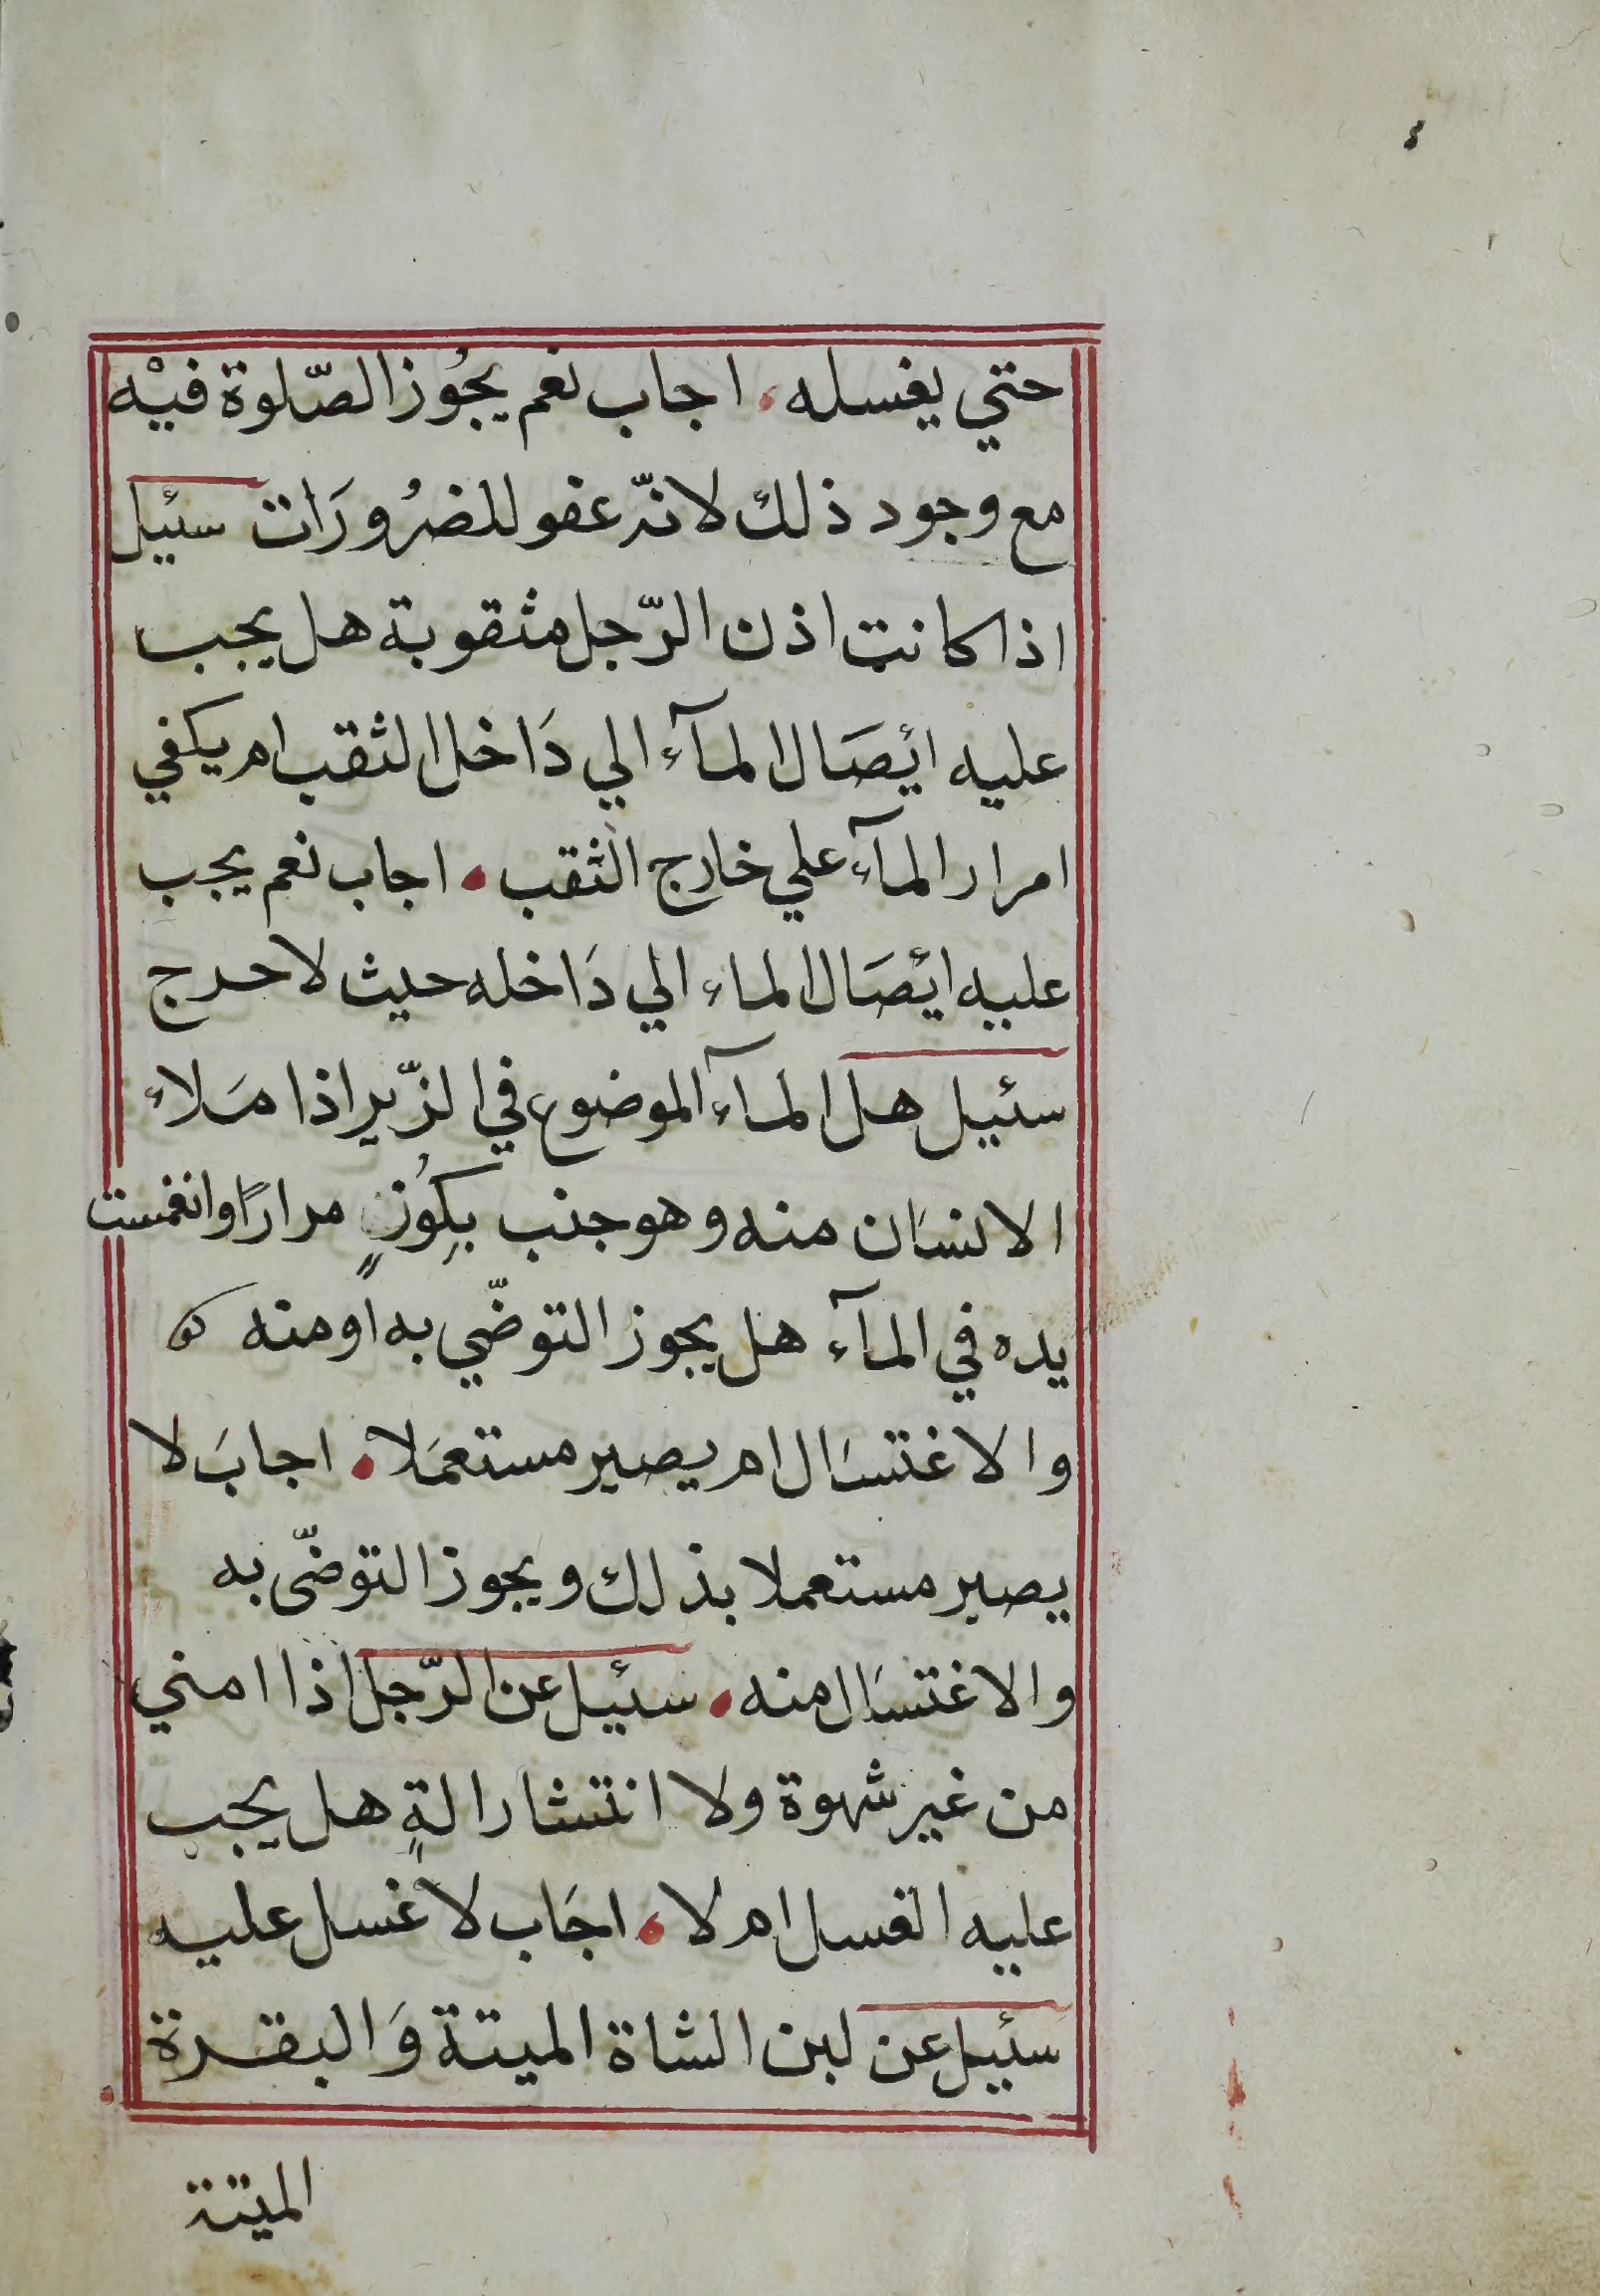 حتي يغسله، اجاب نعم يجُوز الصّلوة فيْه
مع وجود ذلك لانّه عفو للضرُورَات سئيل
اذا كانت اذن الرّجل مثقوبة هل يجب
عليه ايْصَال المآء الي دَاخل الثقب ام يكفي
امرار المآء علي خارج الثقب، اجاب نعم يجب
عليه ايْصَال الماء الي دَاخله حيث لا حرج
سئيل هل المآء الموضوع في الزّير اذا مَلاء
الانسَان منه وهو جنب بكُوزٍ مرارًا وانغمست
يده في المآء هل يجوز التوضّي به او منه
والاغتسَال ام يصير مستعمَلا، اجابَ لا
يصير مستعملا بذلك ويجوز التوضّى به
والاغتسَال منه، سئيل عن الرّجل اذا امني
من غير شهوة ولا انتشار الةٍ هل يجب
عليه الغسل ام لا، اجَاب لا غسل عليه
سئيل عن لبن الشاة الميتة وَالبقرة
الميتة